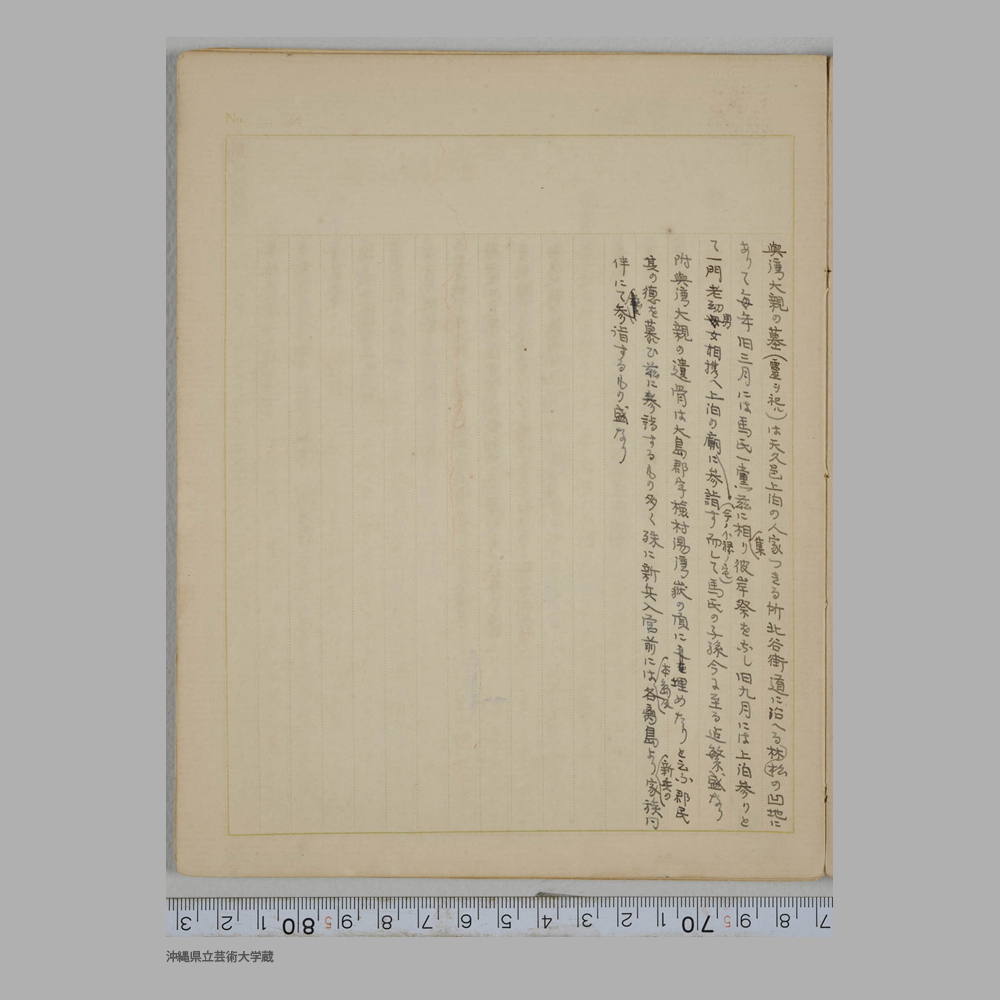 奥湾大親の墓(霊ヲ祀ル)は天久邑上泊の人家つきる所北谷街道に沿へる林松の凹地に
ありて毎年旧三月には馬氏一党茲に相集り彼岸祭をなし旧九月には上泊参りと
て一門老幼男女相携へ上泊の廟に(今ノ小禄ノ宅)参詣す而して馬氏の子孫今に至る迄繁盛なり
附奥湾大親の遺骨は大島郡宇検村湯湾嶽の頂に埋めたりと云ふ郡民
其の徳を慕ひ茲に参詣するもの多く殊に新兵入営前には本島及各離島より新兵の家族同
伴にて参詣するもの盛なり
No.
3 2 1 80 5 9 8 7 6 5 4 3 2 1 70 5 9 8 7
沖縄県立芸術大学蔵